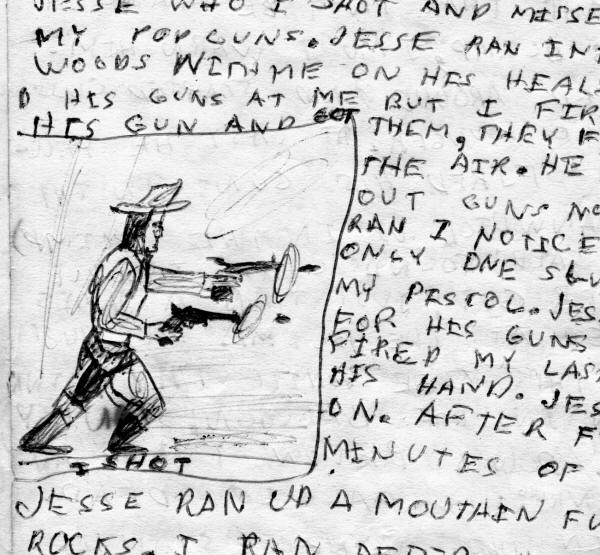 JESSE WHO I SHOT AND MISSE
MY POPGUNS. JESSE RAN INT
WOODS WITH ME ON HES HEALS
D HIS GUNS AT ME BUT I FIR
HES GUN AND GOT THEM, THEY F
THE AIR. HE
OUT GUNS NO
RAN I NOTICE
ONLY ONE SLU
MY PESTOL. JES
FOR HES GUNS
FIRED MY LAS
HIS HAND. JES
ON. AFTER F
MINUTES OF
I SHOT
JESSE RAN UP A MOUTHIN FU
ROCKS. I RAN AFTER